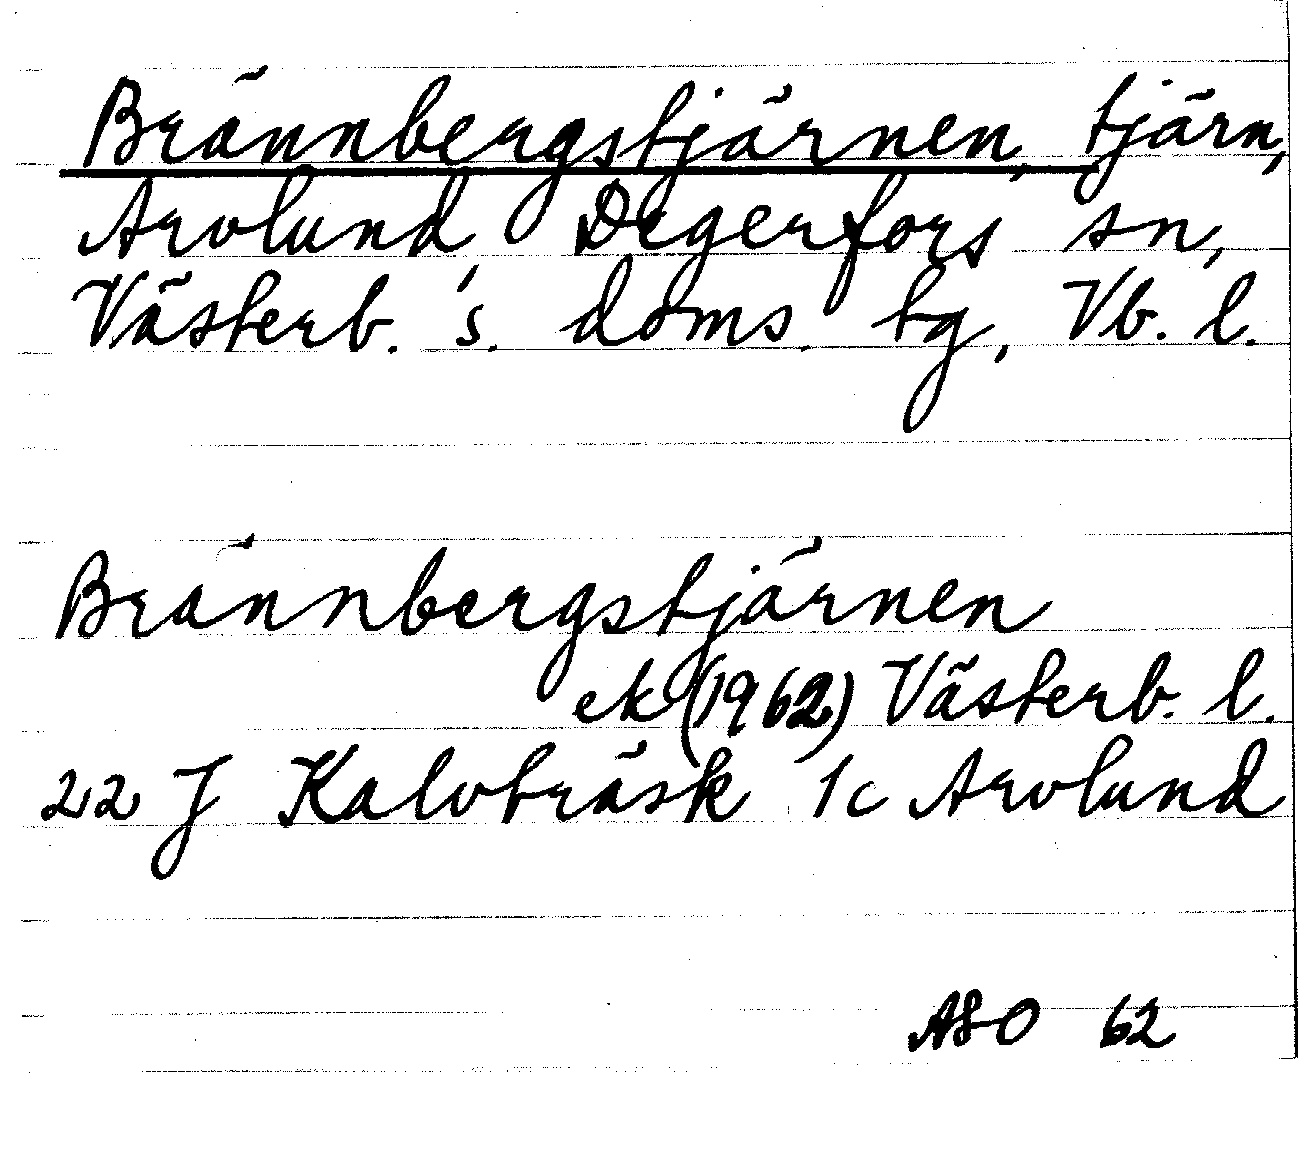 Brännbergstjärnen, tjärn,
Arvlund, Degerfors sn,
Västerb. s. doms. tg, Vb. l.
Brännbergstjärnen
ek (1962) Västerb. l.
22 J Kalvträsk 1c Arvlund
ASO 62